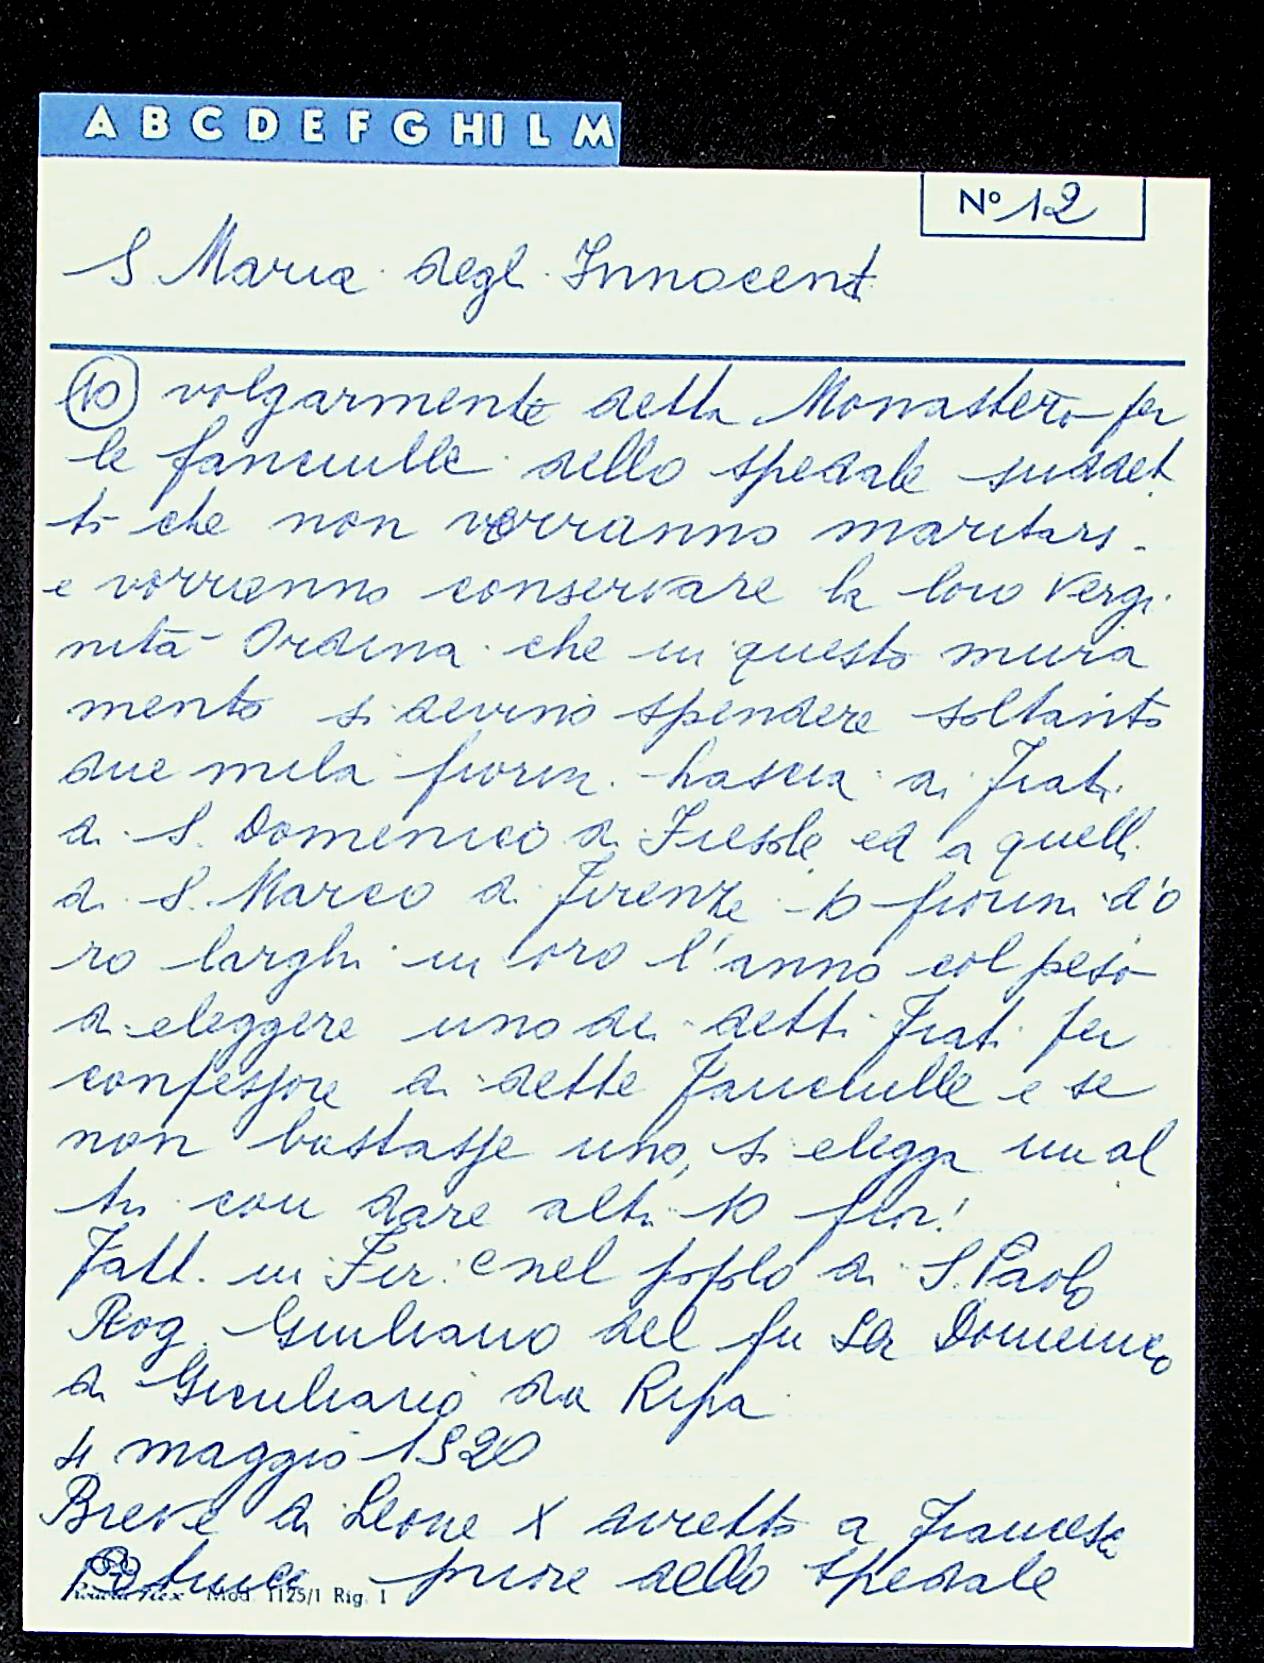 A B C D E F G HI L M
Nº 12
S Maria degl Innocent
10 volgarmente detta Monastero per
le fanciulle dello spedale suddet
to che non vorranno maritarsi
e vorranno conservare la loro vergi
nità Ordina che in questo mura
mento si devino spendere soltanto
due mila fiorin. lascia ai Frati
di S. Domenico di Fiesole ed a quelli
di S. Marco di Firenze 10 fiorini d'o
ro larghi in oro l'anno col peso
di eleggere uno dei detti Frati per
confessore di dette Fanciulle e se
non bastasse uno, si elegga un al
tro con dare altri 10 fior!
Fatt. in Fir. e nel popolo di S. Paolo
Rog. Giuliano del fu Ser Domenico
di Giuliano da Ripa
4 maggio 1520
Breve di Leone X diretto a Francesco
priore dello Spedale
Mod. 1125/1 Rig. 1